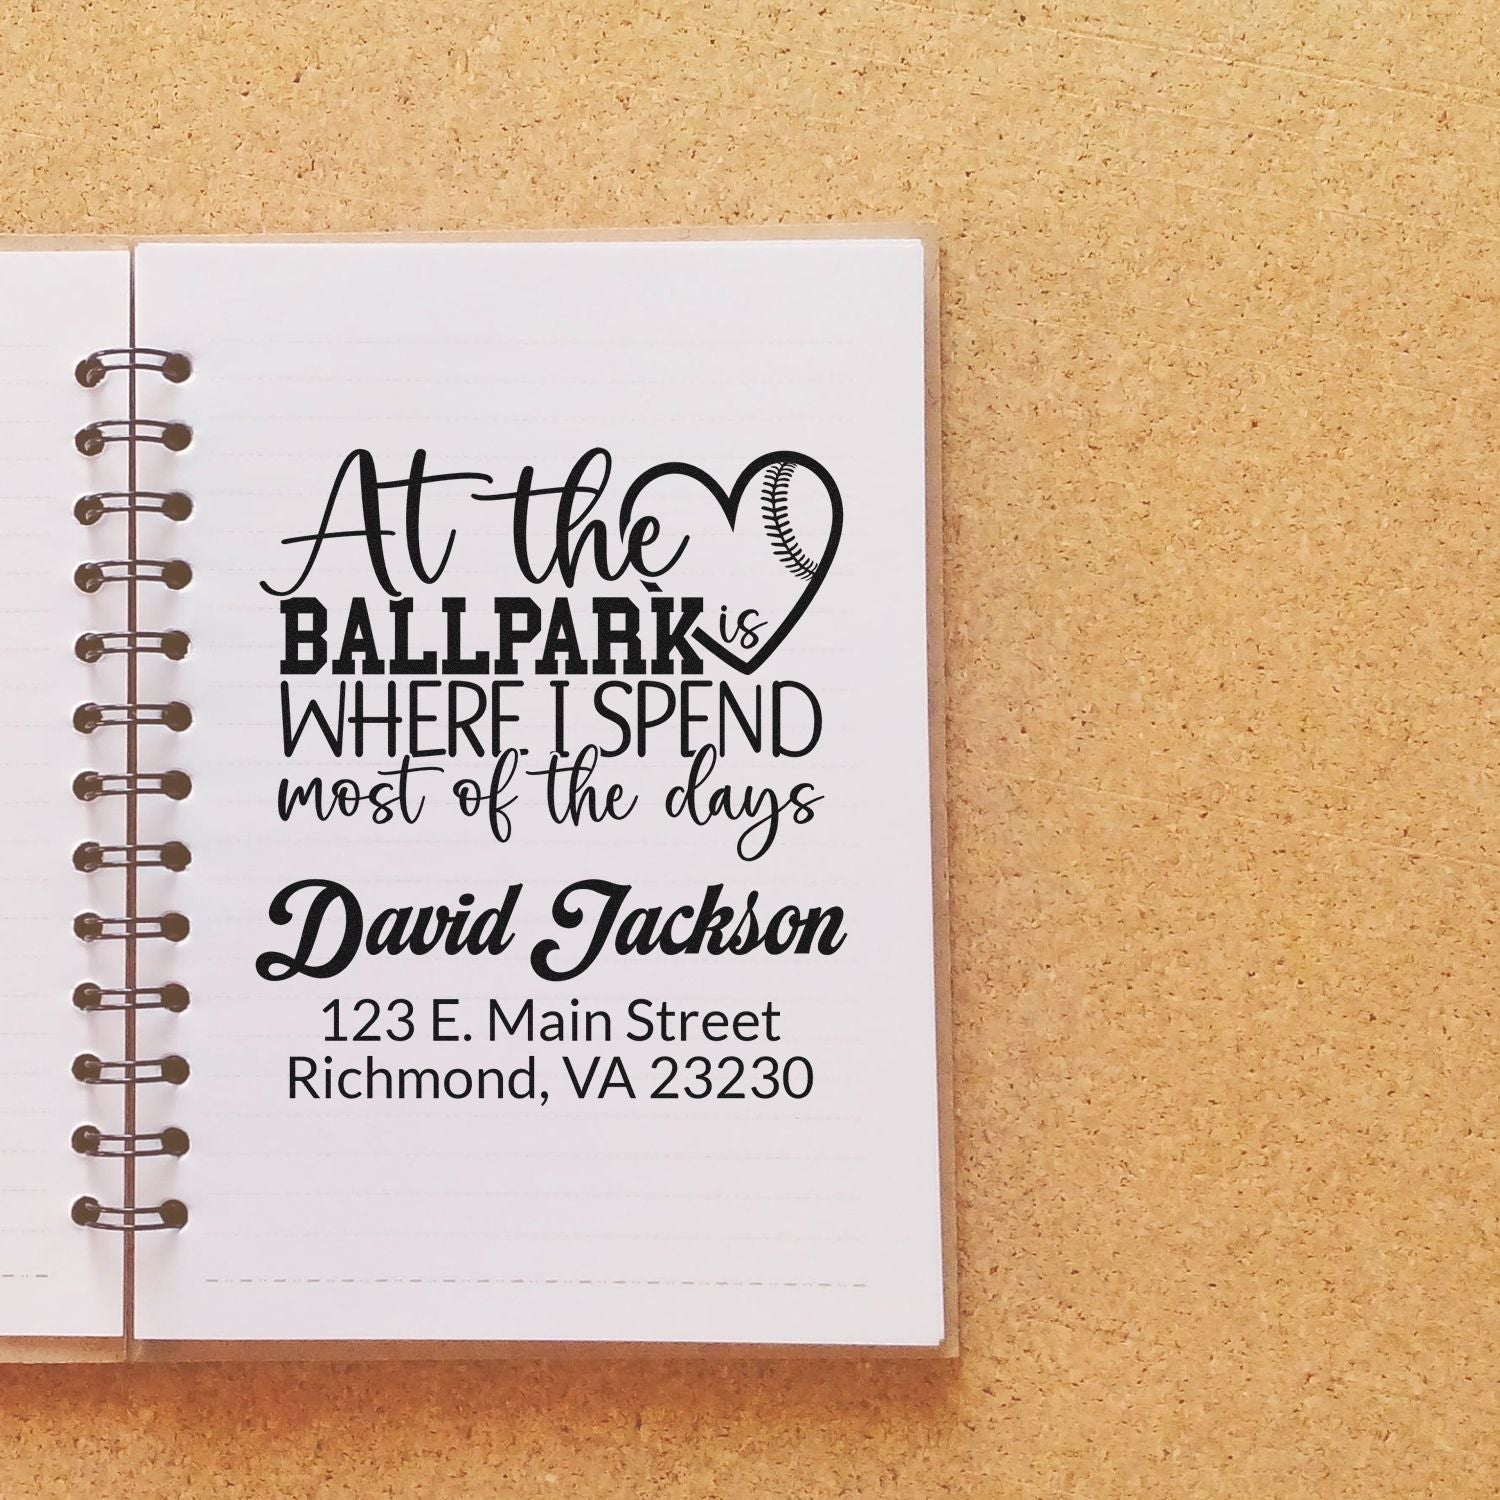 At the
BALLPARK is
WHERE I SPEND
most of the days
David Jackson
123 E. Main Street
Richmond, VA 23230